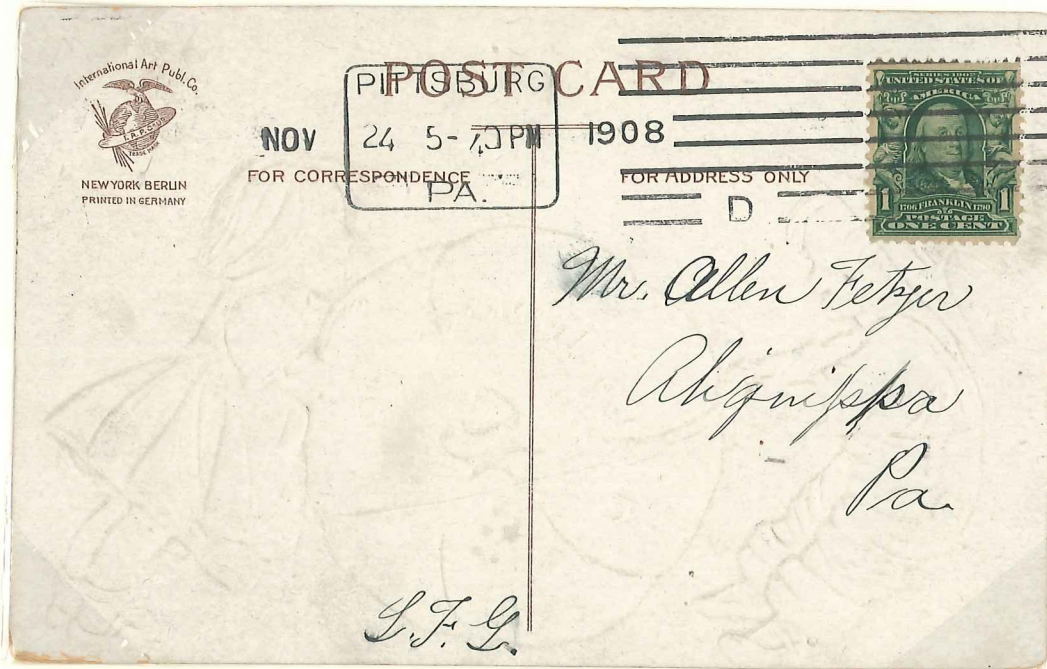 International Art Publ. Co.
I.A.P.Co.
TRADE MARK
NEW YORK BERLIN
PRINTED IN GERMANY
POST CARD
PITTSBURG
NOV 24 5- PM 1908
PA.
D
FOR CORRESPONDENCE
FOR ADDRESS ONLY
SERIES 1902
UNITED STATES OF
AMERICA
1 1706 FRANKLIN 1790 1
POSTAGE
ONE CENT
Mr. Allen Fetzer
Aliquippa
Pa.
L.F.G.